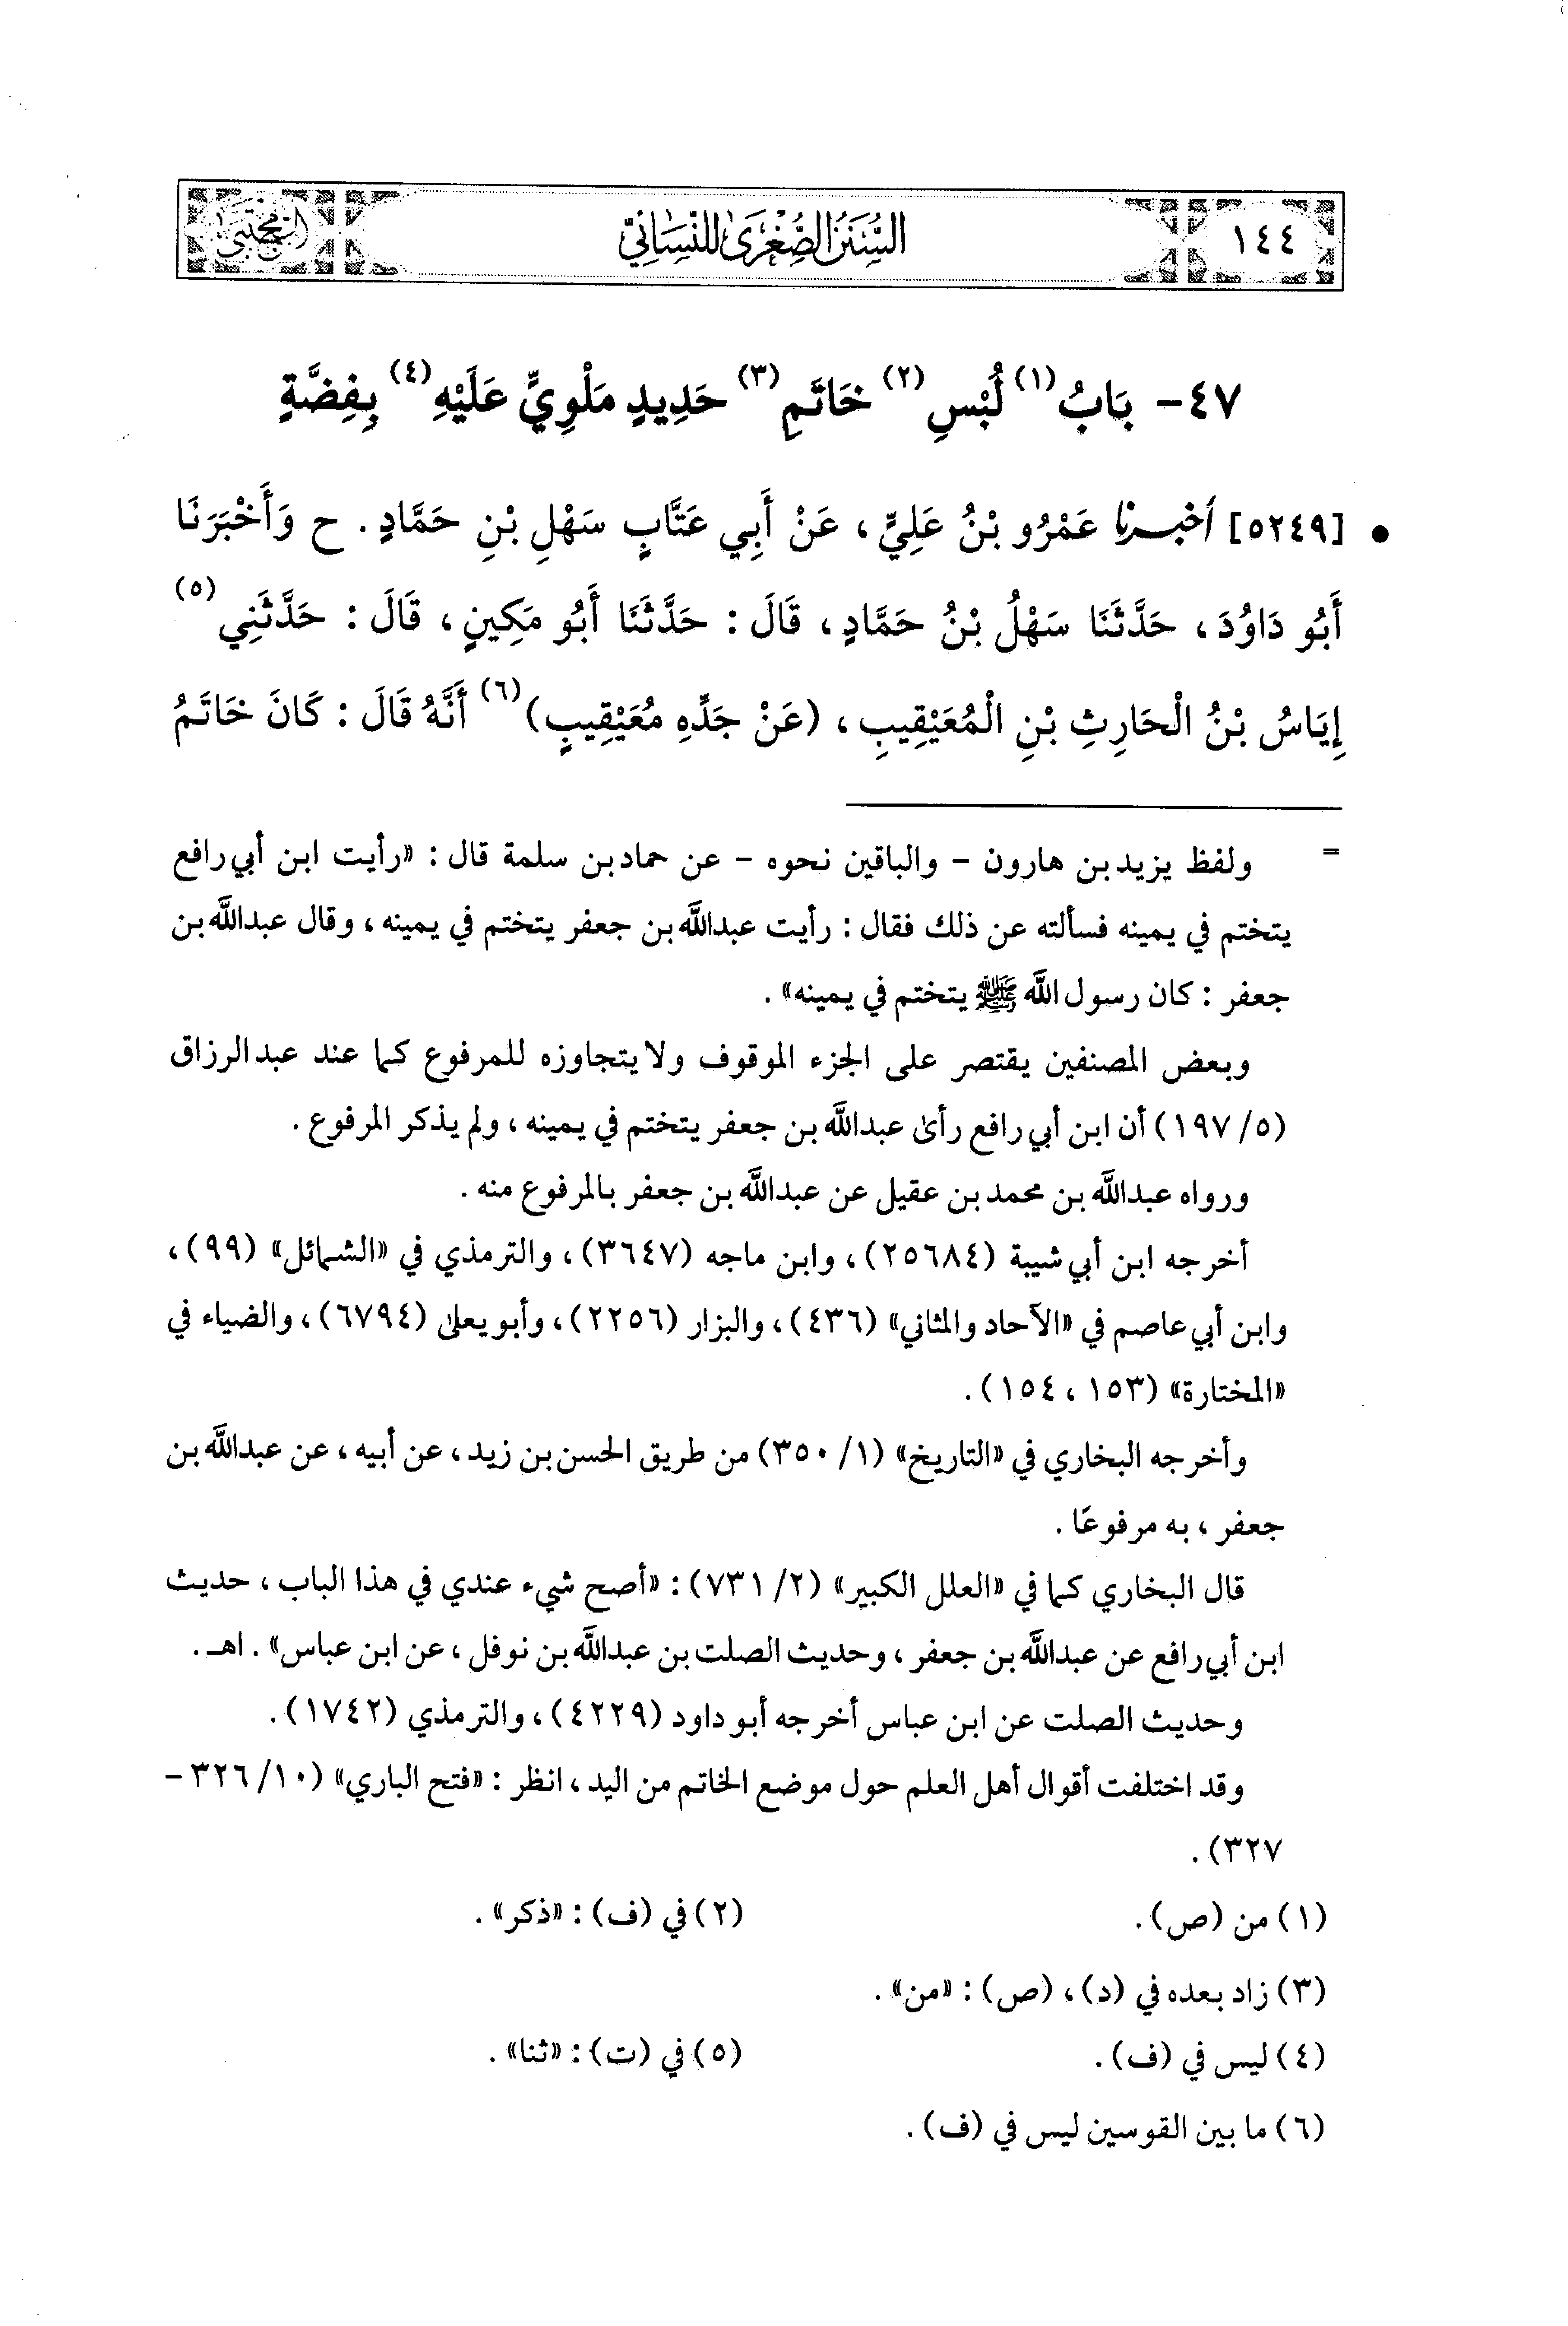 ١٤٤
السُّنَنُ الصُّغْرَىٰ لِلنَّسَائِيِّ
المجتبى
٤٧- بَابُ(١) لُبْسِ(٢) خَاتَمِ(٣) حَدِيدٍ مَلْوِيٍّ عَلَيْهِ(٤) بِفِضَّةٍ
• [٥٢٤٩] أخبرنا عَمْرُو بْنُ عَلِيٍّ، عَنْ أَبِي عَتَّابٍ سَهْلِ بْنِ حَمَّادٍ. ح وَأَخْبَرَنَا
أَبُو دَاوُدَ، حَدَّثَنَا سَهْلُ بْنُ حَمَّادٍ، قَالَ: حَدَّثَنَا أَبُو مَكِينٍ، قَالَ: حَدَّثَنِي(٥)
إِيَاسُ بْنُ الْحَارِثِ بْنِ الْمُعَيْقِيبِ، (عَنْ جَدِّهِ مُعَيْقِيبٍ)(٦) أَنَّهُ قَالَ: كَانَ خَاتَمُ
= ولفظ يزيد بن هارون - والباقين نحوه - عن حماد بن سلمة قال: «رأيت ابن أبي رافع
يتختم في يمينه فسألته عن ذلك فقال: رأيت عبدالله بن جعفر يتختم في يمينه، وقال عبدالله بن
جعفر: كان رسول الله ﷺ يتختم في يمينه».
وبعض المصنفين يقتصر على الجزء الموقوف ولا يتجاوزه للمرفوع كما عند عبدالرزاق
(٥/ ١٩٧) أن ابن أبي رافع رأىٰ عبدالله بن جعفر يتختم في يمينه، ولم يذكر المرفوع.
ورواه عبدالله بن محمد بن عقيل عن عبدالله بن جعفر بالمرفوع منه.
أخرجه ابن أبي شيبة (٢٥٦٨٤)، وابن ماجه (٣٦٤٧)، والترمذي في «الشمائل» (٩٩)،
وابن أبي عاصم في «الآحاد والمثاني» (٤٣٦)، والبزار (٢٢٥٦)، وأبو يعلىٰ (٦٧٩٤)، والضياء في
«المختارة» (١٥٣، ١٥٤).
وأخرجه البخاري في «التاريخ» (١/ ٣٥٠) من طريق الحسن بن زيد، عن أبيه، عن عبدالله بن
جعفر، به مرفوعًا.
قال البخاري كما في «العلل الكبير» (٢/ ٧٣١): «أصح شيء عندي في هذا الباب، حديث
ابن أبي رافع عن عبدالله بن جعفر، وحديث الصلت بن عبدالله بن نوفل، عن ابن عباس». اهـ.
وحديث الصلت عن ابن عباس أخرجه أبو داود (٤٢٢٩)، والترمذي (١٧٤٢).
وقد اختلفت أقوال أهل العلم حول موضع الخاتم من اليد، انظر: «فتح الباري» (١٠/ ٣٢٦ -
٣٢٧).
(١) من (ص). (٢) في (ف): «ذكر».
(٣) زاد بعده في (د)، (ص): «من».
(٤) ليس في (ف). (٥) في (ت): «ثنا».
(٦) ما بين القوسين ليس في (ف).